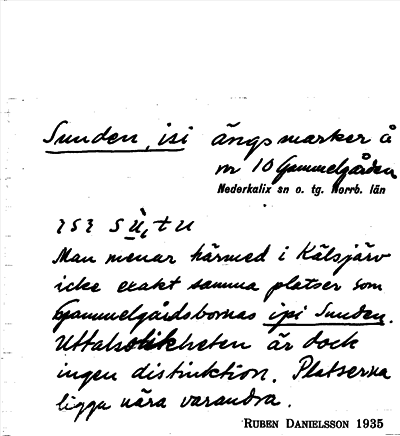 Sunden, isi ängsmarker å
nr 10 Gammelgården
Nederkalix sn o. tg. Norrb. län
Man menar härmed i Kälsjärv
icke exakt samma platser som
Gammelgårdsbornas ipi Sunden.
Uttalsolikheten är dock
ingen distinktion. Platserna
ligga nära varandra.
RUBEN DANIELSSON 1935